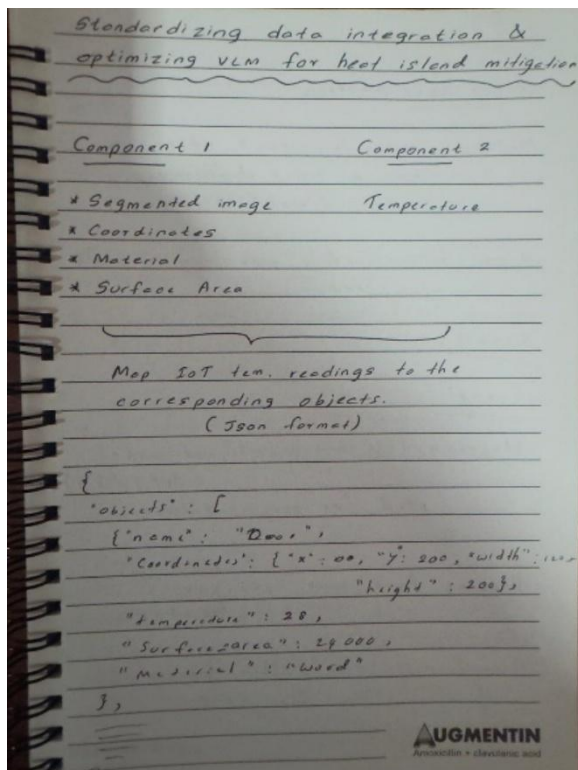 Standardizing data integration &
optimizing VLM for heat island mitigation
Component 1 Component 2
* Segmented image Temperature
* Coordinates
* Material
* Surface Area
Map IoT tem. readings to the
corresponding objects.
(Json format)
{
"objects" : [
{ "name" : "Door",
"Coordinates" : { "x" : 00, "y" : 200, "width" :
"height" : 200},
"temperature" : 28,
"Surface-area" : 24000,
"Material" : "Wood"
},
AUGMENTIN
Amoxicillin + clavulanic acid